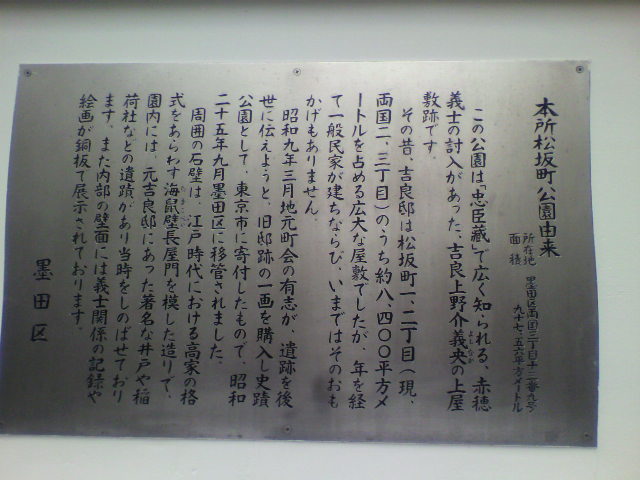 本所松坂町公園由来
所在地 墨田区両国三丁目十三番九号
面積 九十七、五六平方メートル
この公園は「忠臣蔵」で広く知られる、赤穂
義士の討入があった、吉良上野介義央の上屋
よしなか
敷跡です。
その昔、吉良邸は松坂町一、二丁目(現、
両国二、三丁目)のうち約八、四〇〇平方メ
ートルを占める広大な屋敷でしたが、年を経
て一般民家が建ちならび、いまではそのおも
かげもありません。
昭和九年三月地元町会の有志が、遺跡を後
世に伝えようと、旧邸跡の一画を購入し史蹟
公園として、東京市に寄付したもので、昭和
二十五年九月墨田区に移管されました。
周囲の石壁は、江戸時代における高家の格
式をあらわす海鼠壁長屋門を模した造りで、
園内には、元吉良邸にあった著名な井戸や稲
荷社などの遺蹟があり当時をしのばせており
ます。また内部の壁面には義士関係の記録や
絵画が銅板で展示されております。
墨田区